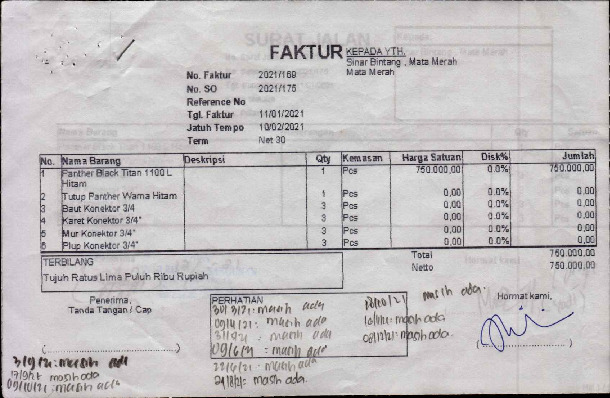 SURAT JALAN
FAKTUR
KEPADA YTH.
Sinar Bintang , Mata Merah
Mata Merah
No. Faktur 2021/169
No. SO 2021/175
Reference No
Tgl. Faktur 11/01/2021
Jatuh Tempo 10/02/2021
Term Net 30
No. Nama Barang Deskripsi Qty Kemasan Harga Satuan Disk% Jumlah
1 Panther Black Titan 1100 L Hitam 1 Pcs 750.000,00 0.0% 750.000,00
2 Tutup Panther Warna Hitam 1 Pcs 0,00 0.0% 0,00
3 Baut Konektor 3/4 3 Pcs 0,00 0.0% 0,00
4 Karet Konektor 3/4" 3 Pcs 0,00 0.0% 0,00
5 Mur Konektor 3/4" 3 Pcs 0,00 0.0% 0,00
6 Plup Konektor 3/4" 3 Pcs 0,00 0.0% 0,00
Total 750.000,00
Netto 750.000,00
TERBILANG
Tujuh Ratus Lima Puluh Ribu Rupiah
Penerima,
Tanda Tangan / Cap
PERHATIAN
30/3/21: masih ada
09/4/21: masih ada
: masih ada
09/6/21: masih ada
22/6/21: masih ada
24/8/21: masih ada.
masih ada.
: masih ada
: masih ada.
Hormat kami,
: masih ada
masih ada
: masih ada